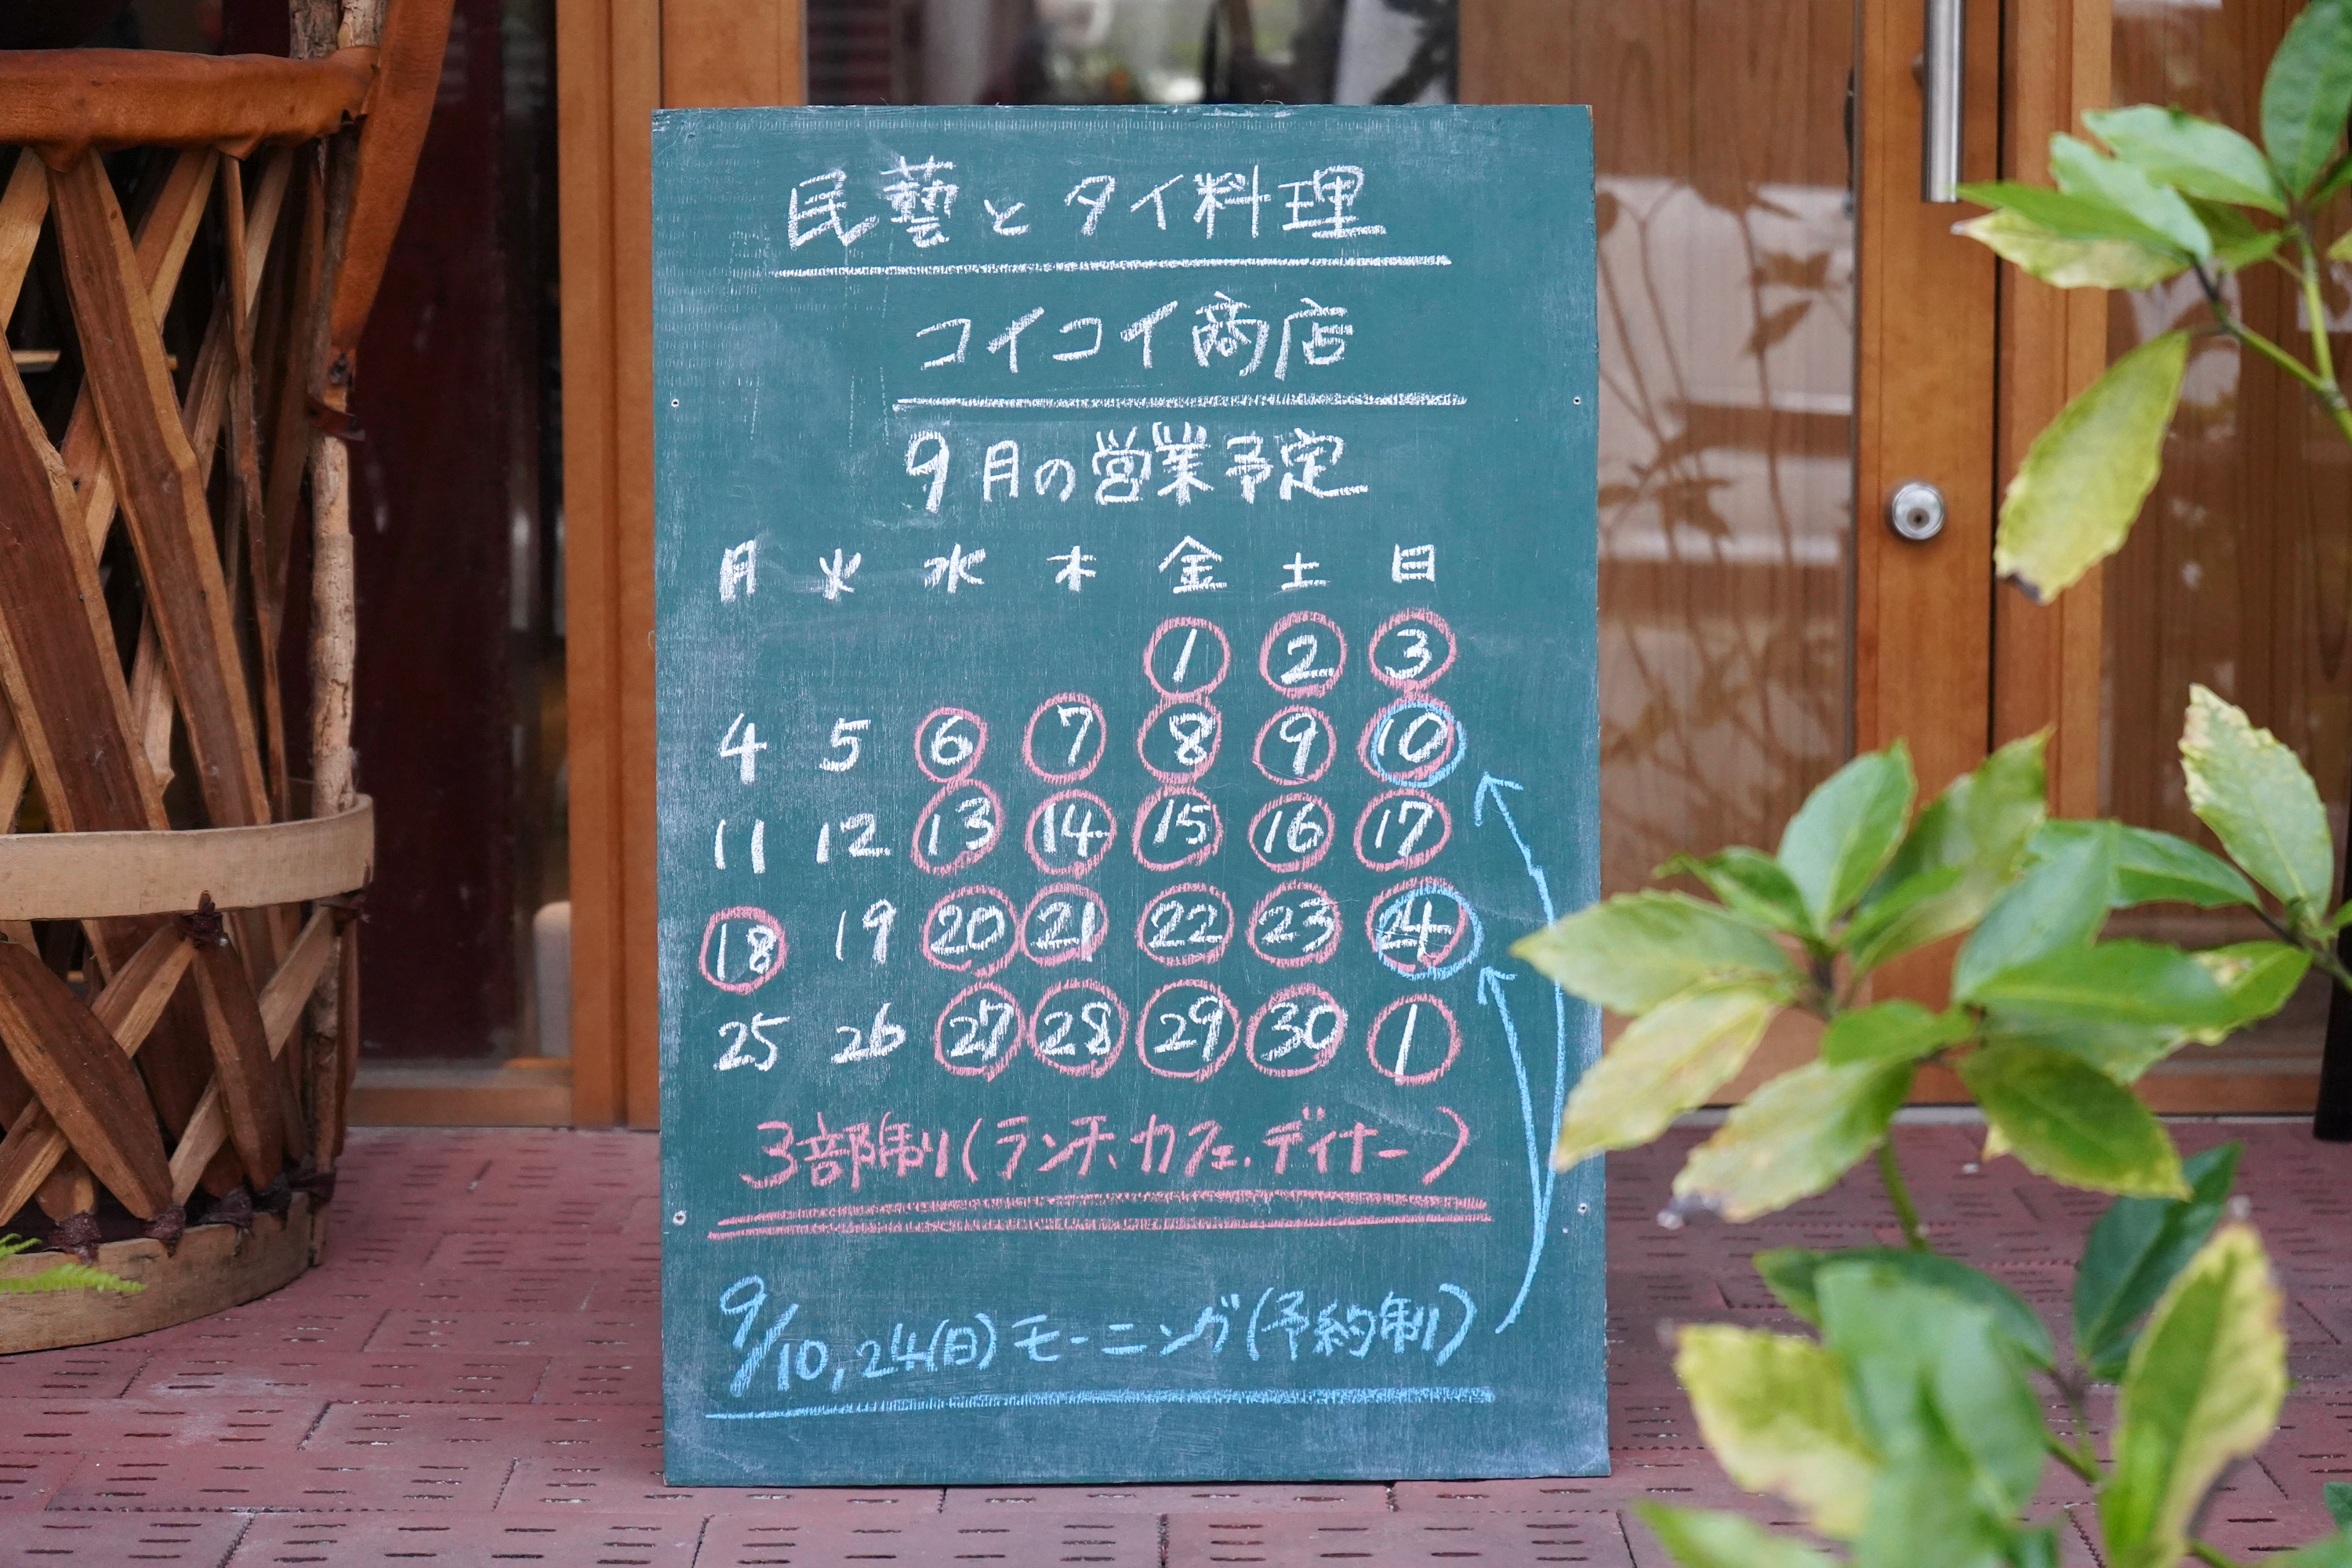 民藝とタイ料理
コイコイ商店
9月の営業予定
月 火 水 木 金 土 日
1 2 3
4 5 6 7 8 9 10
11 12 13 14 15 16 17
18 19 20 21 22 23 24
25 26 27 28 29 30 1
3部制(ランチ、カフェ、ディナー)
9/10,24(日)モーニング(予約制)